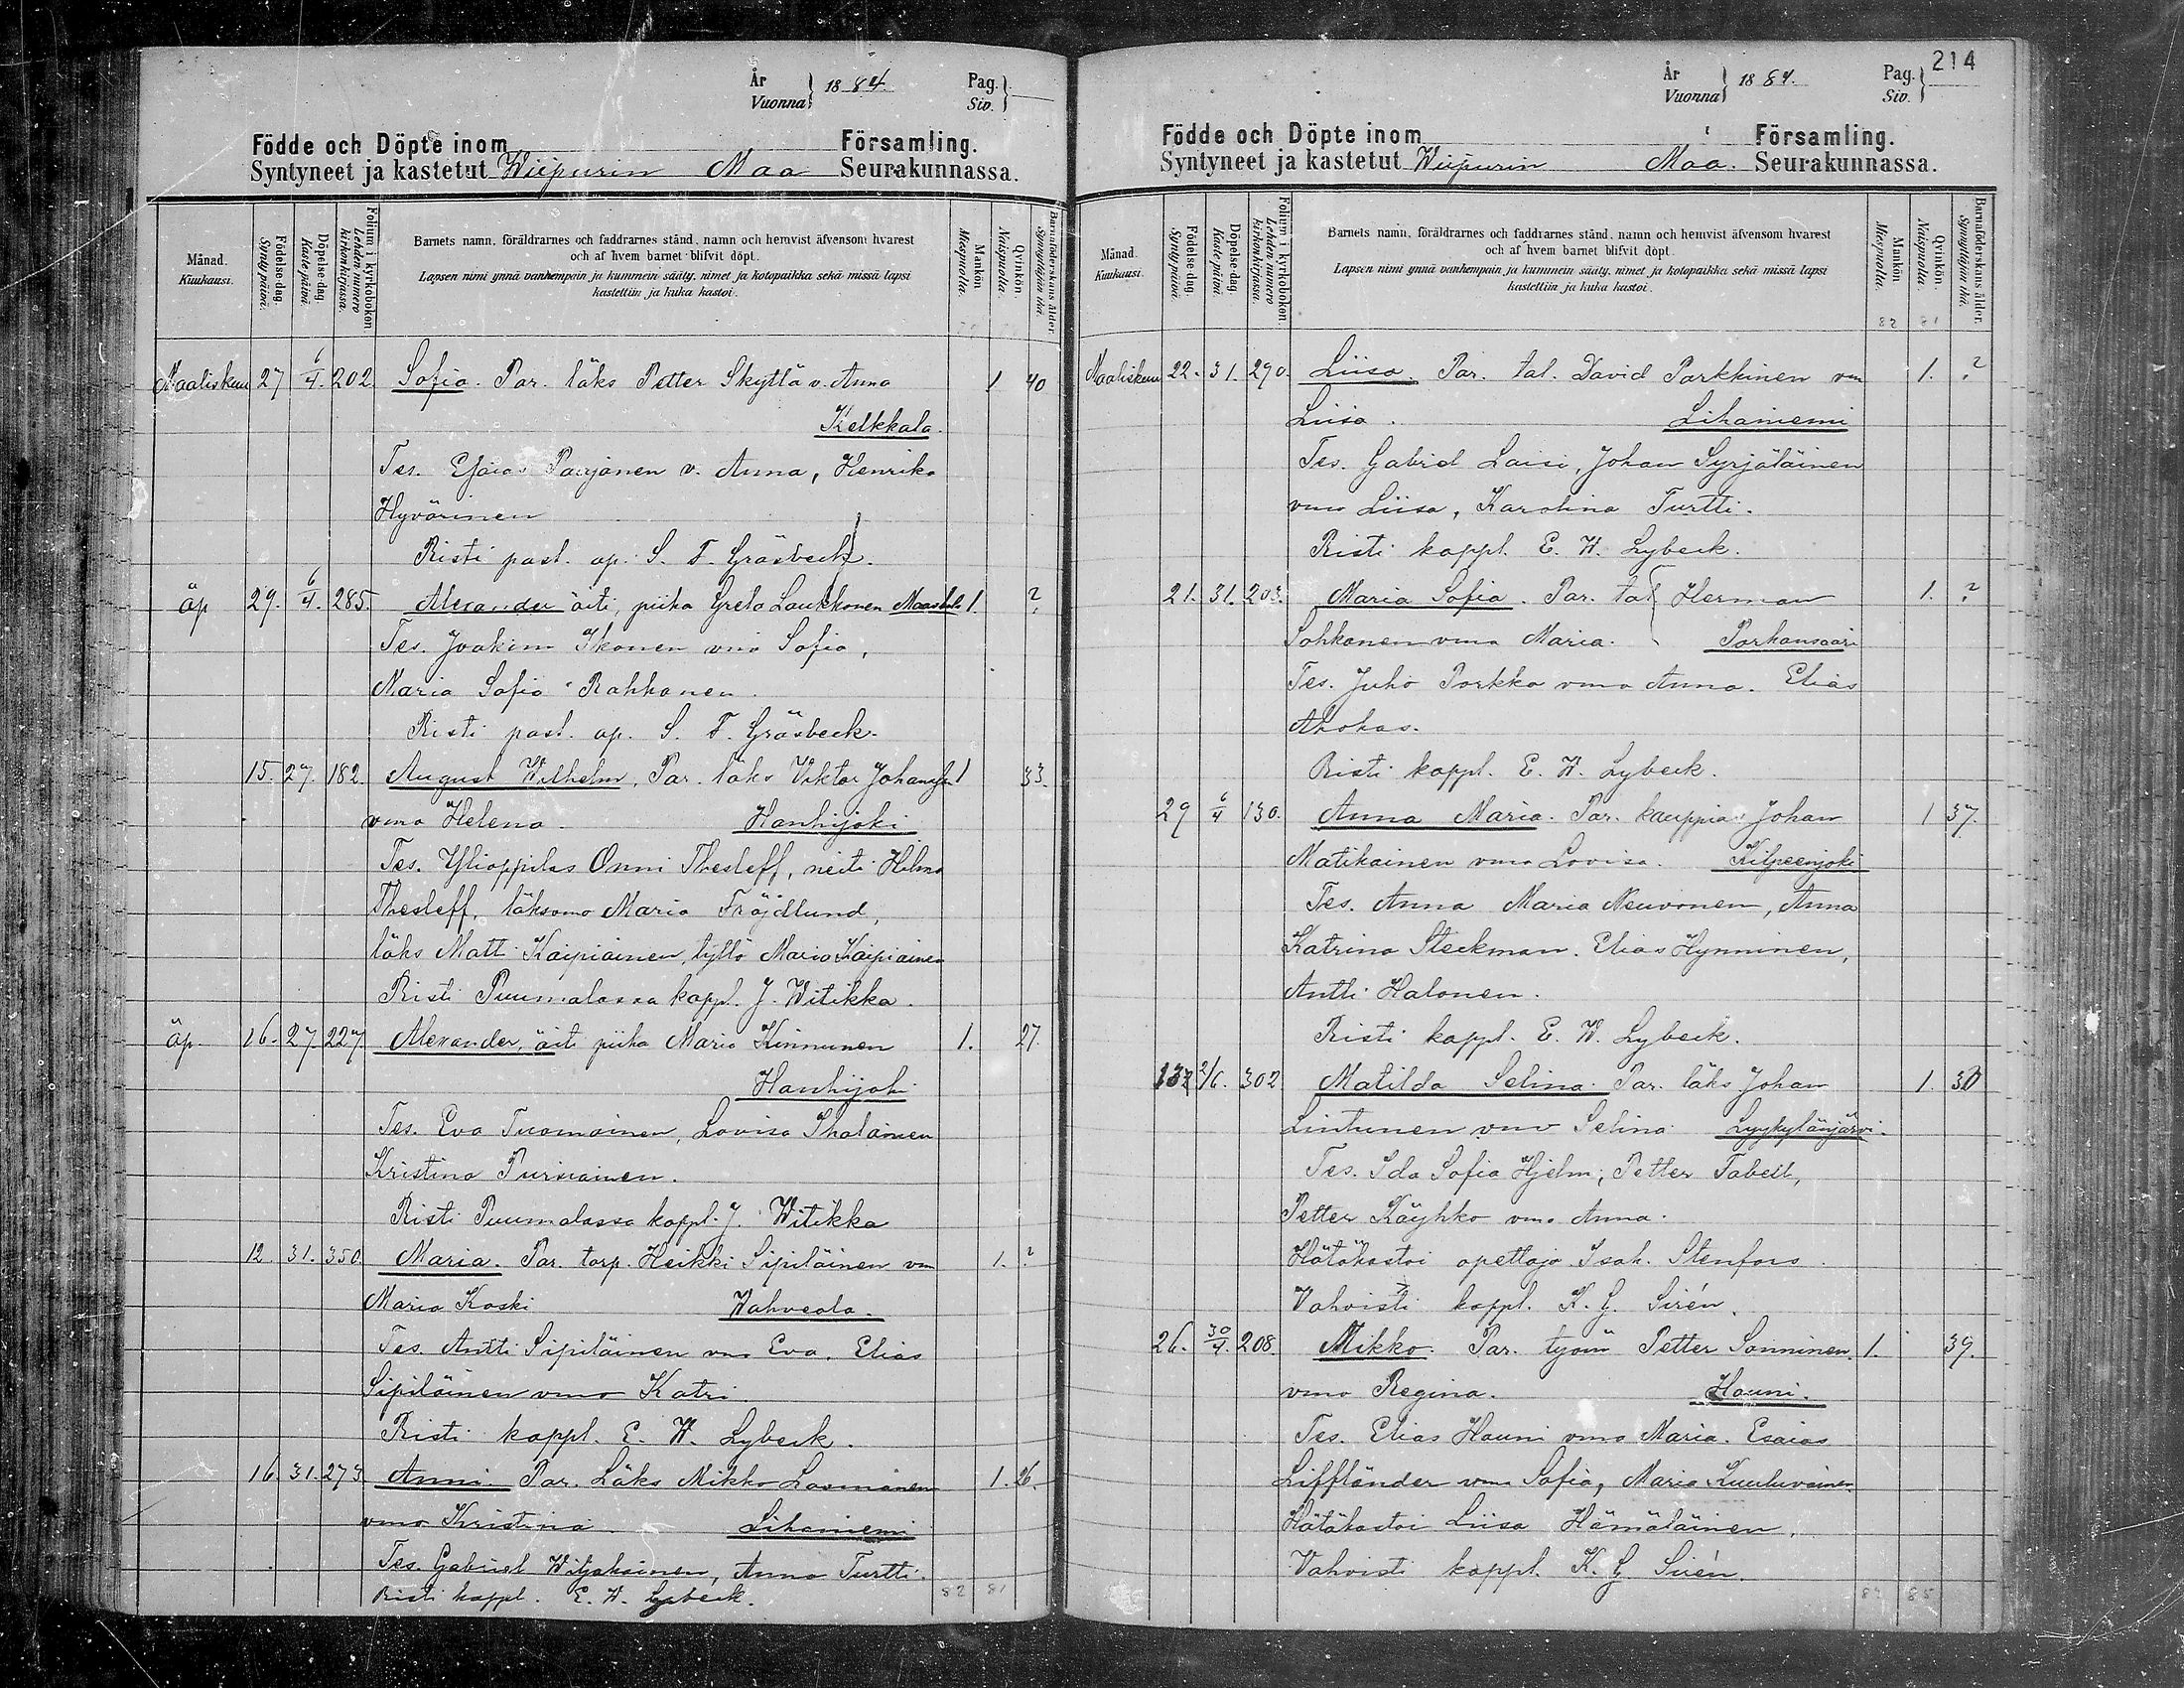 År
Vuonna } 18 84. Pag.
Siv. }
Födde och Döpte inom Församling.
Syntyneet ja kastetut Wiipurin Maa Seurakunnassa.
Månad.
Kuukausi.
Födelse-dag.
Synty päivä.
Döpelse-dag.
Kaste päivä.
Folium i kyrkoboken.
Lehden numero kirkonkirjassa.
Barnets namn, föräldrarnes och faddrarnes stånd, namn och hemvist äfvensom hvarest
och af hvem barnet blifvit döpt.
Lapsen nimi ynnä vanhempain ja kummein sääty, nimet ja kotopaikka sekä missä lapsi
kastettiin ja kuka kastoi.
Mankön.
Miespuolia.
Qvinkön.
Naispuolia.
Barnaföderskans ålder.
Synnyttäjän ikä.
Maaliskuu 27 6/4. 202 Sofia. Par. läks Petter Skyttä v. Anna 1 40
Kelkkala.
Tes. Esaias Paajanen v. Anna, Henrika
Hyvärinen
Risti past. ap. S. F. Gräsbeck.
äp 29. 6/4. 285. Alexander äiti, piika Greta Laukkonen 1. ?
Tes. Joakim Ikonen vmo Sofia,
Maria Sofia Rahkonen.
Risti past. ap. S. F. Gräsbeck.
15. 27. 182. August Wilhelm, Par. läks Viktor 1 33.
vmo Helena. Hanhijoki
Tes. Ylioppilas Onni Thesleff, neiti Hilma
Thesleff, läksomo Maria Fröjdlund,
läks Matti Kaipiainen, tyttö Maria Kaipiainen
Risti Puumalassa kappl. J. Witikka.
äp. 16. 27. 227 Alexander, äiti piika Maria Kinnunen 1. 27.
Hanhijoki
Tes. Eva Tuomainen, Lovisa Ihalainen
Kristina Pursiainen.
Risti Puumalassa kappl. J. Witikka
12. 31. 350. Maria. Par. torp. Heikki Sipiläinen vm 1. ?
Maria Koski Wahveala.
Tes. Antti Sipiläinen vmo Eva, Elias
Sipiläinen vmo Katri
Risti kappl. E. W. Lybeck.
16. 31. 273 Anni Par. Läks Mikko 1. 26.
vmo Kristina Lihaniemi
Tes. Gabriel Wiljakainen, Anna Turtti.
Risti kappl. E. W. Lybeck. 82 81
214
År
Vuonna } 18 84. Pag.
Siv. }
Födde och Döpte inom Församling.
Syntyneet ja kastetut Wiipurin Maa. Seurakunnassa.
Månad.
Kuukausi.
Födelse-dag.
Synty päivä.
Döpelse-dag.
Kaste päivä.
Folium i kyrkoboken.
Lehden numero kirkonkirjassa.
Barnets namn, föräldrarnes och faddrarnes stånd, namn och hemvist äfvensom hvarest
och af hvem barnet blifvit döpt.
Lapsen nimi ynnä vanhempain ja kummein sääty, nimet ja kotopaikka sekä missä lapsi
kastettiin ja kuka kastoi.
Mankön.
Miespuolia.
Qvinkön.
Naispuolia.
Barnaföderskans ålder.
Synnyttäjän ikä.
82 81
Maaliskuu 22. 31. 290. Liisa. Par. tal. David Parkkinen vm 1. ?
Liisa. Lihaniemi
Tes. Gabriel Laisi, Johan Syrjäläinen
vmo Liisa, Karolina Turtti.
Risti kappl. E. W. Lybeck.
21. 31. 203. Maria Sofia. Par. tal Herman 1. ?
Sohkanen vmo Maria. Porkansaari
Tes. Juho Porkka vmo Anna. Elias
Ahokas.
Risti kappl. E. W. Lybeck.
29 6/4 130. Anna Maria. Par. kauppias Johan 1 37.
Matikainen vmo Lovisa. Kilpeenjoki
Tes. Anna Maria Neuvonen, Anna
Katrina Steckman. Elias Hynninen,
Antti Halonen.
Risti kappl. E. W. Lybeck.
302 Matilda Selina. Par. läks Johan 1. 30
Lintunen vmo Selina Lyykylänjärvi.
Tes. Ida Sofia Hjelm, Petter Tabell,
Petter Käyhkö vmo Anna.
Hätäkastoi opettaja Isak. Stenfors.
Vahvisti kappl. K. G. Sirén.
26. 30/4. 208. Mikko. Par. työm Petter Sonninen. 1. 39.
vmo Regina. Hauni.
Tes. Elias Hauni vmo Maria. Esaias
Liffländer vmo Sofia, Maria Kuuluvainen
Hätäkastoi Liisa Hämäläinen.
Vahvisti kappl. K. G. Sirén.